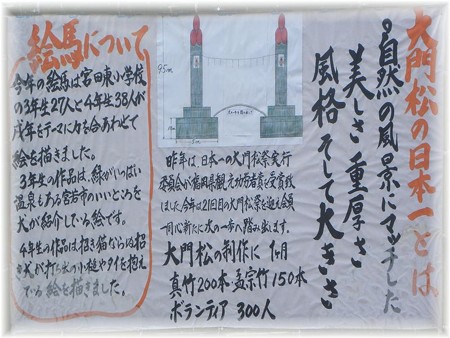 大門松の日本一とは
自然の風景にマッチした
美しさ 重厚さ
風格 そして大きさ
9.5m
昨年は、日本一の大門松祭実行
委員会が福岡県観光功労者賞を受賞致
しました。今年は21回目の大門松祭を迎え会員
一同心新たに次の一歩へ踏み出します。
大門松の制作に 1ヶ月
真竹200本 孟宗竹150本
ボランティア 300人
絵馬について
今年の絵馬は宮田東小学校
の3年生27人と4年生38人が
戌年をテーマに力を合わせて
絵を描きました。
3年生の作品は、緑がいっぱい
温泉もある宮若市のいいところを
犬が紹介している絵です。
4年生の作品は招き猫ならぬ招
き犬が打ち出の小槌やタイを抱え
ている絵を描きました。